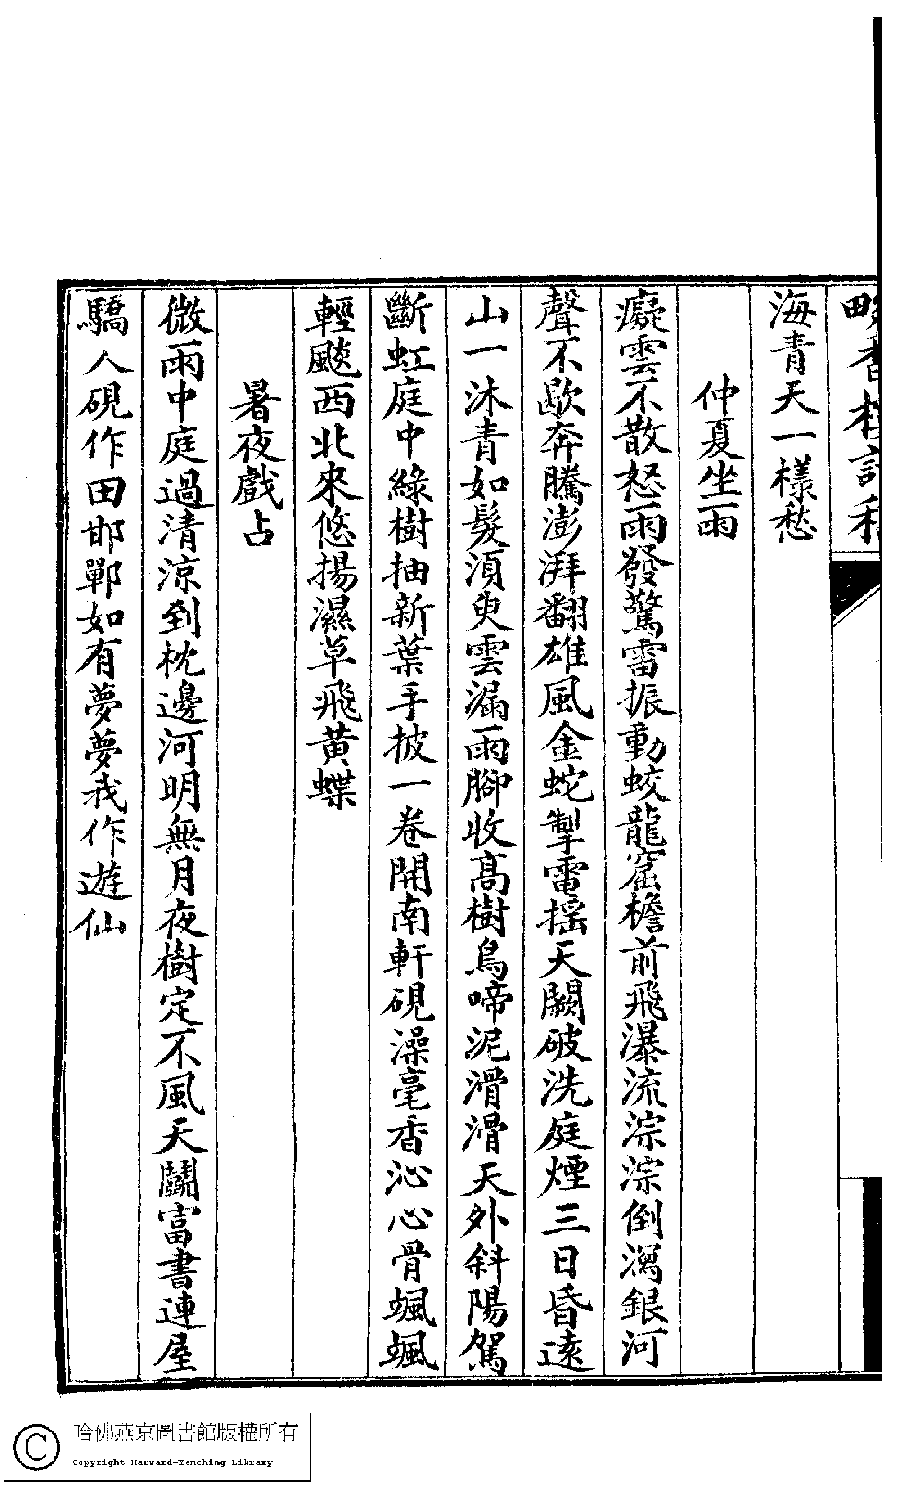 畹香樓詩稿
海青天一樣愁
仲夏坐雨
癡雲不散怒雨發驚雷振動蛟龍窟檐前飛瀑流淙淙倒瀉銀河
聲不歇奔騰澎湃翻雄風金蛇掣電搖天闕破洗庭煙三日昏遠
山一沐青如髮須臾雲漏雨腳收高樹鳥啼泥滑滑天外斜陽駕
斷虹庭中綠樹抽新葉手披一卷開南軒硯澡毫香沁心骨颯颯
輕颸西北來悠揚濕草飛黃蝶
暑夜戲占
微雨中庭過清涼到枕邊河明無月夜樹定不風天鬭富書連屋
驕人硯作田邯鄲如有夢夢我作遊仙
哈佛燕京圖書館版權所有
Copyright Harvard-Yenching Library